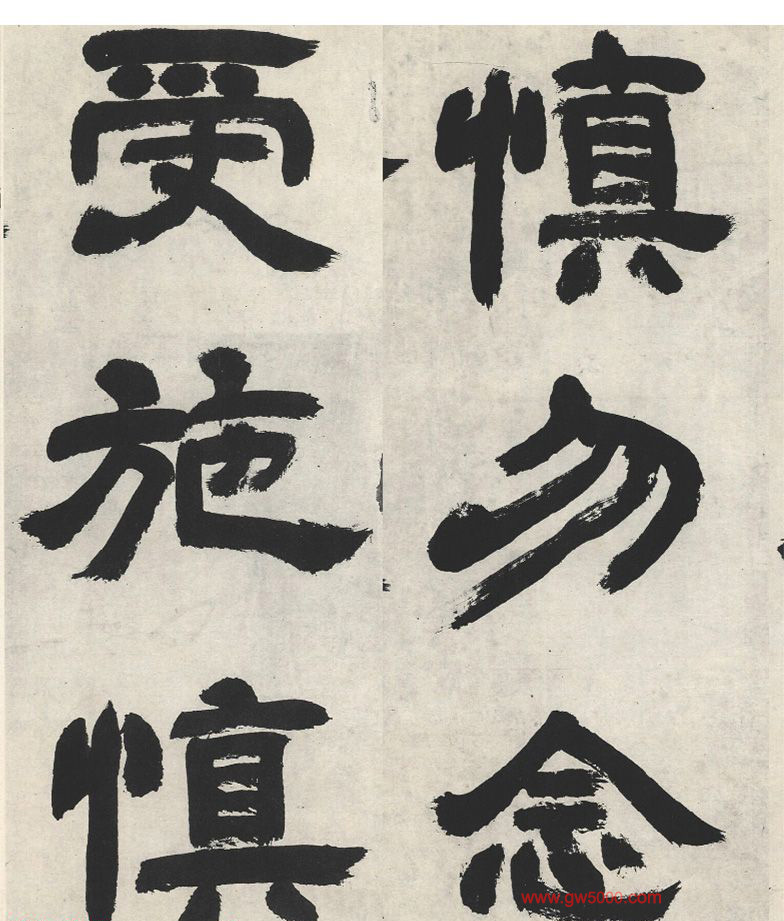 慎勿念
受施慎
www.gw5000.com